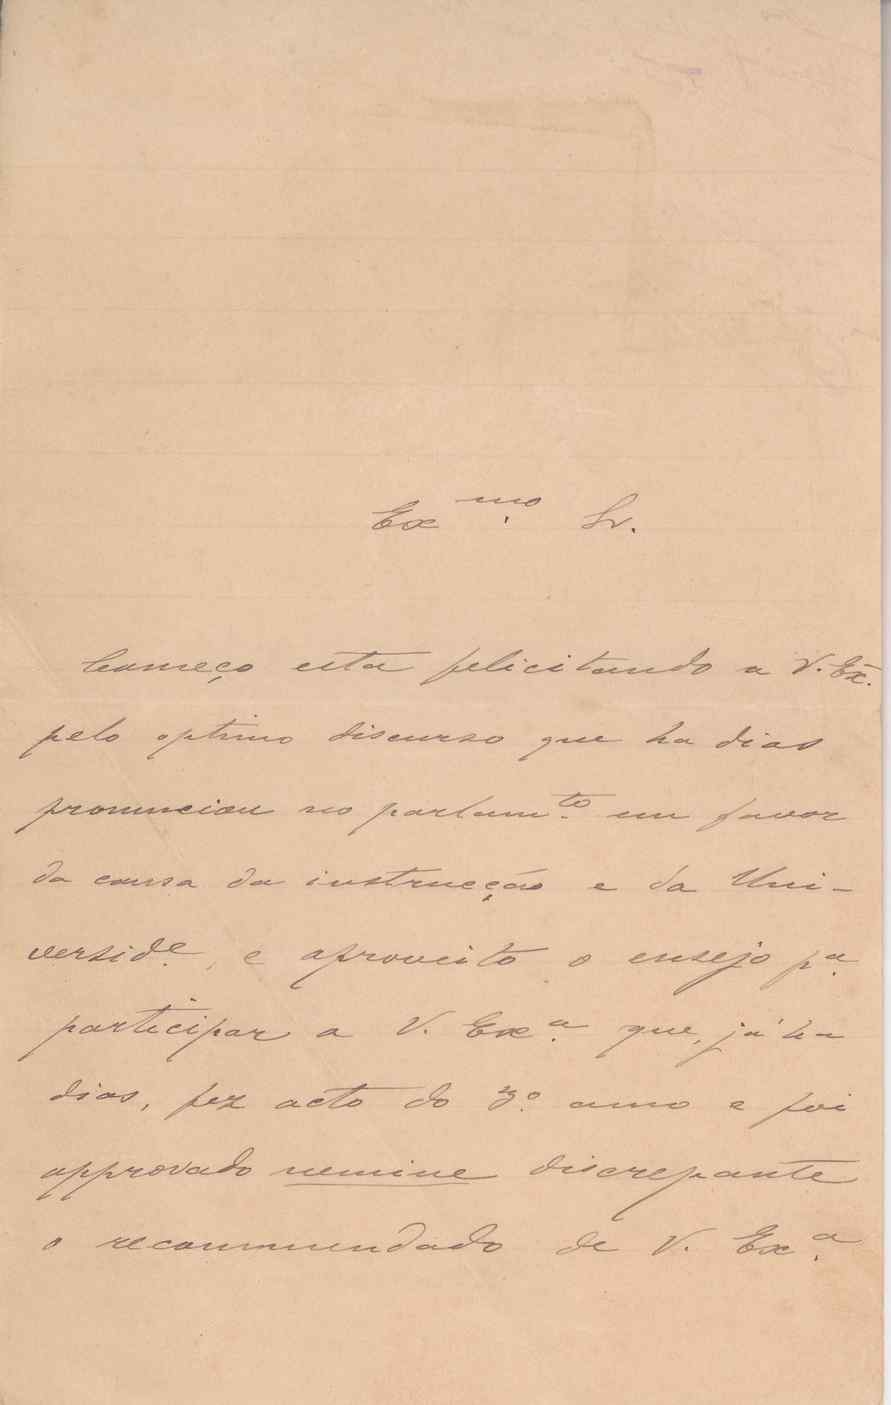 Ex.mo Sr.
Começo esta felicitando a V. Ex.
pelo optimo discurso que ha dias
pronunciou no parlam.to em favor
da causa da instrucção e da Uni-
versid.e, e aproveito o ensejo p.a
participar a V. Ex.a que, já ha
dias, fez acto do 3.o anno e foi
approvado nemine discrepante
o recommendado de V. Ex.a